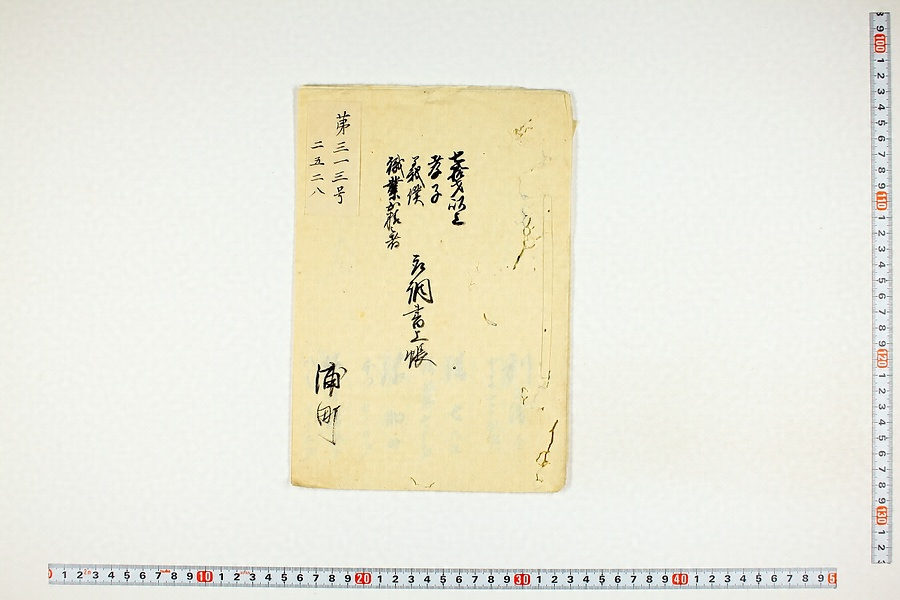 以上
孝子
義僕
職業出精者
取調書上帳
浦町
第三一三号
二五二八